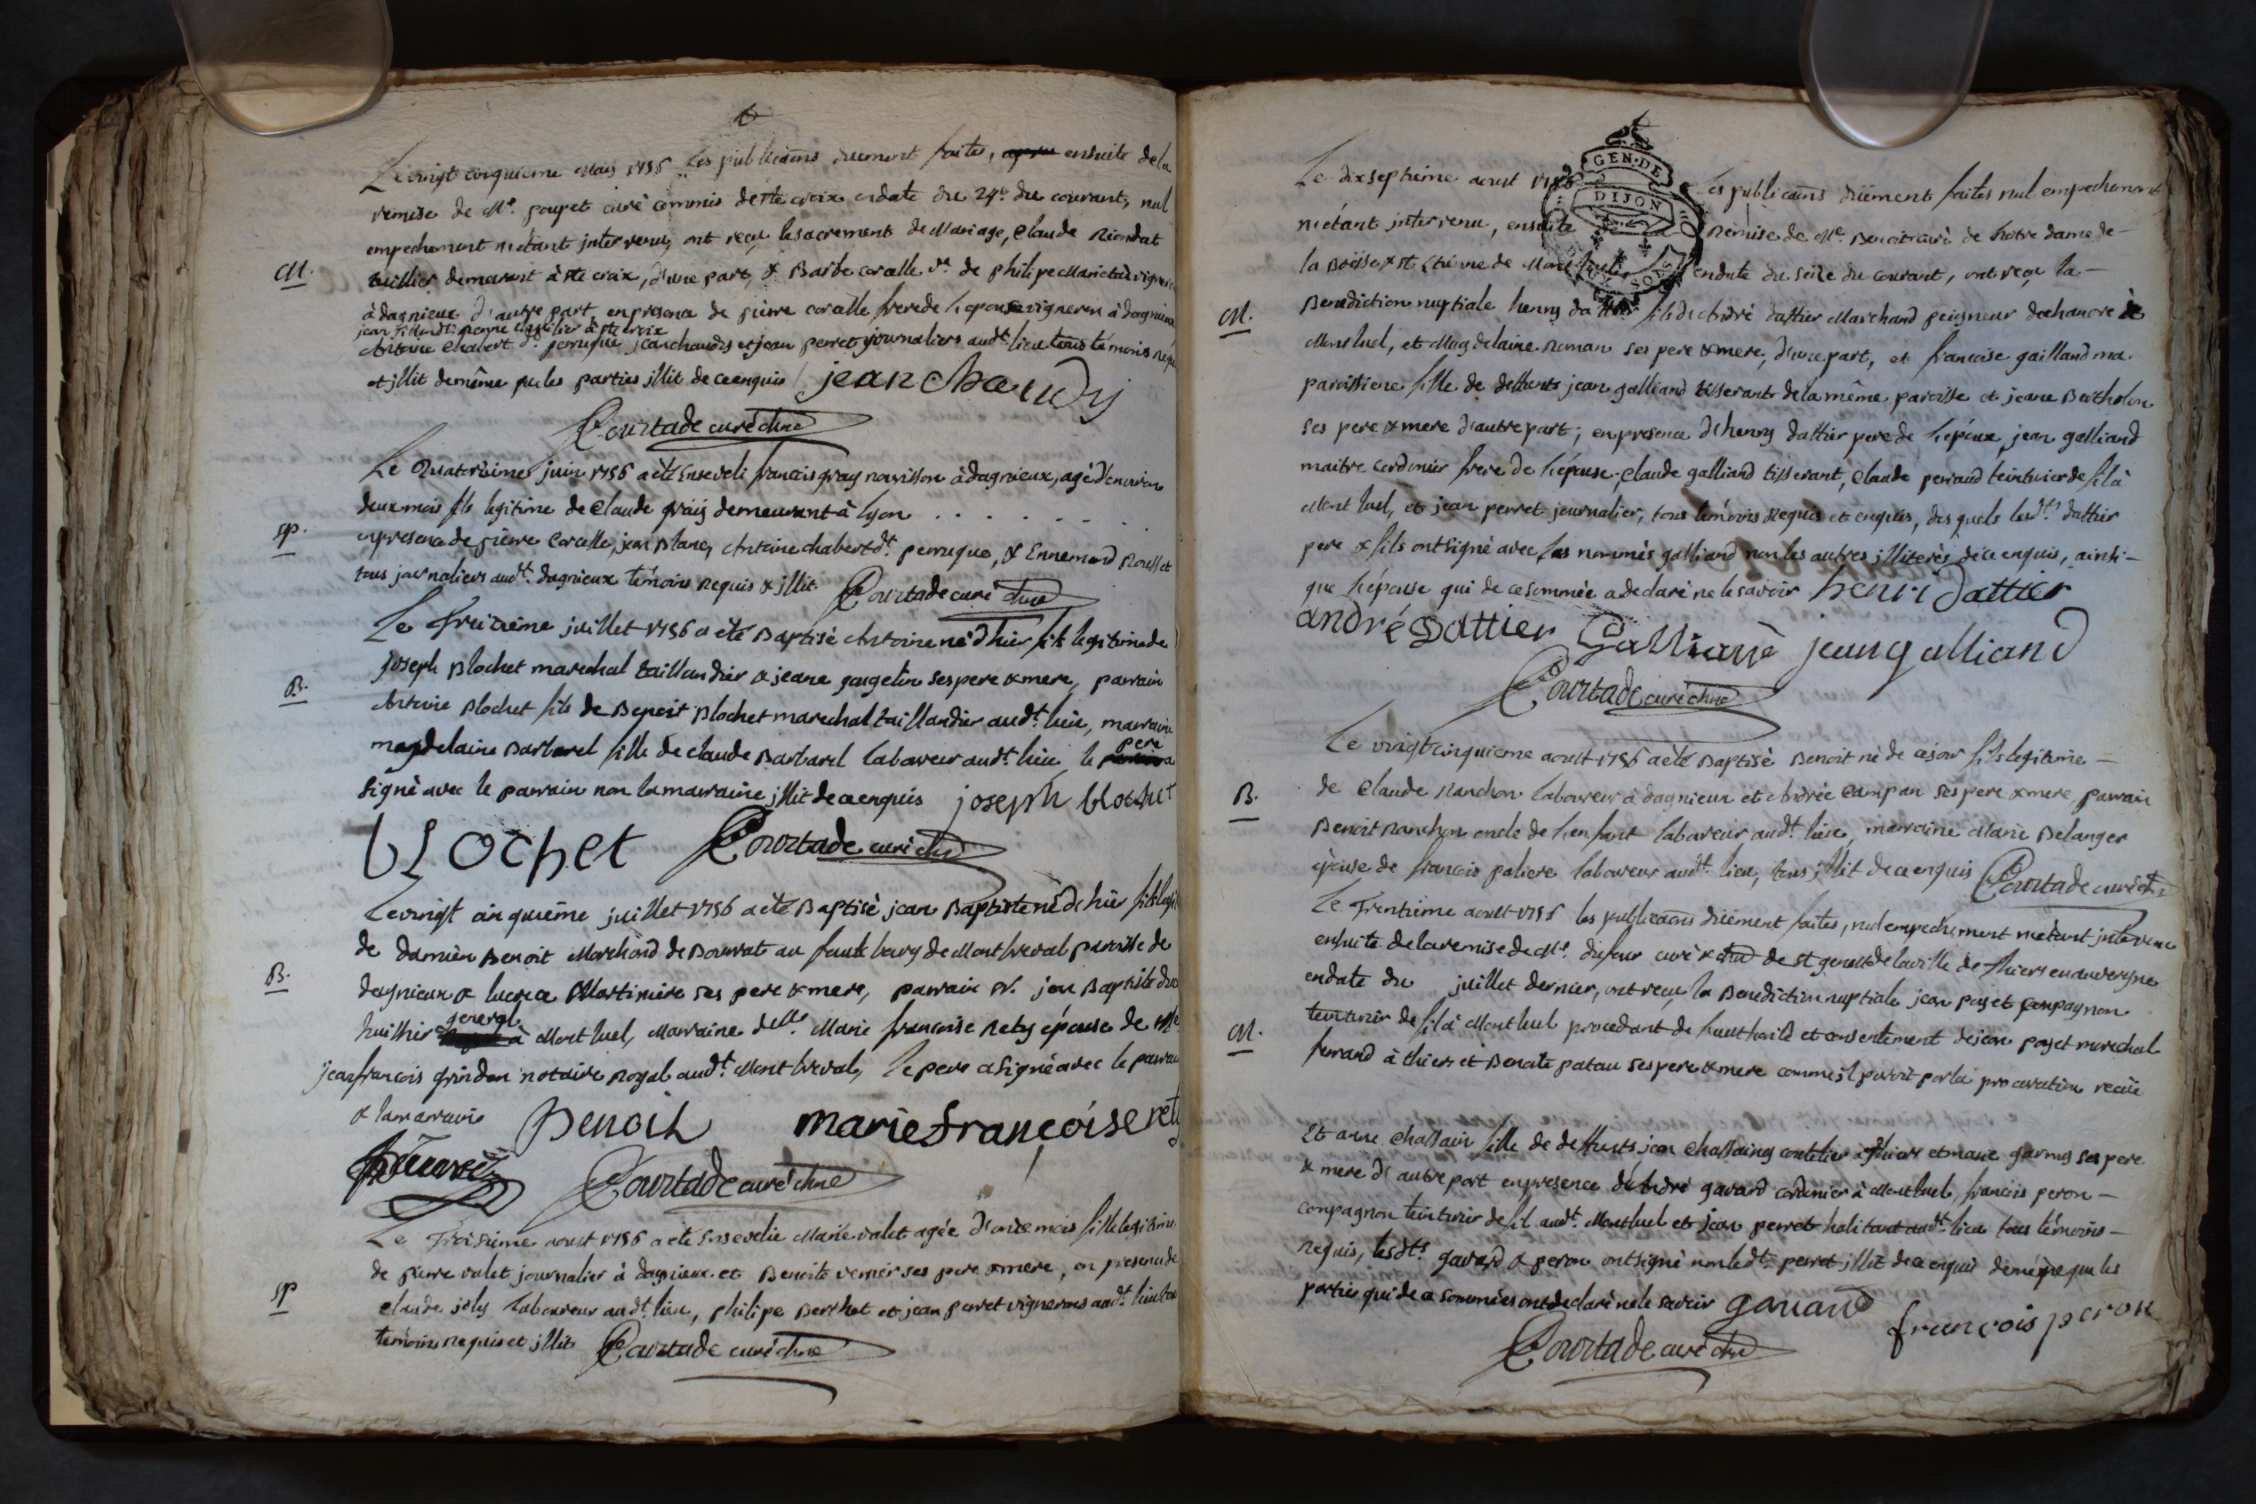 Le vingt cinquieme mars 1756 les publicaõns duement faites, ensuite de la
remise de Mre. poupet curé commis de ste croix en date du 24e. du courant, nul
empechement n'etant intervenu, ont reçu le sacrement de Mariage, Claude Riondat
M.
tuillier demeurant à ste croix, d'une part, & Barbe coralle ve. de philipe Marietta vigneron
à dagnieux d'autre part, en presence de pierre coralle frere de l'epouse vigneron à dagnieux
Antoine Chabert dt. perruque, jean chaudy et jean perret journaliers audt. lieu tous témoins requis
et illit de même que les parties illit. de ce enquis jean Chaudy
Courtade curé
Le Quatorzième juin 1756 a eté enseveli francois gray nourrisson à dagnieux, agé d'environ
deux mois fils legitime de Claude grais demeurant à lyon . . . . . . .
sp.
en presence de pierre Coralle, jean Blanc, Antoine chabert dt. perruque, & Ennemond Rousset
tous journaliers audt. dagnieux témoins requis & illit. Courtade curé
Le Treizième juillet 1756 a eté Baptisé Antoine né d'hier fils legitime de
joseph Blochet marechal taillandier & jeane gaugelin ses pere & mere, parrain
B.
Antoine Blochet fils de Benoit Blochet marechal taillandier audt. lieu, marraine
magdelaine Barbarel fille de claude Barbarel laboureur audt. lieu, le pere a
signé avec le parrain non la marraine illit. de ce enquis joseph blochet
blochet Courtade curé
Le vingt cinquième juillet 1756 a eté Baptisé jean Baptiste né d'hier fils legit
de damien Benoit Marchand de Bourvat au faux bourg de Montluel paroisse de
B.
dagnieux & lucrece Martiniere ses pere & mere, parrain sr. jean Baptiste
huissier general à Montluel, Marraine delle. Marie francoise Rety épouse de Me
jean francois grindon notaire Royal audt. Montluel, le pere a signé avec le parrain
& la marraine Benoit marie françoise rety
Courtade curé
Le Troisième aoust 1756 a eté ensevelie Marie valet agée d'onze mois fille legitime
de pierre valet journalier à dagnieux et Benoite vernier ses pere & mere, en presence de
sp
Claude joly laboureur audt. lieu, philipe Berthet et jean perret vignerons audt. lieu tous
temoins requis et illit. Courtade curé
GEN·DE
DIJON
Le dix septieme aoust 1756 Les publicaõns duëment faites nul empechement
n'etant intervenu, ensuite Remise de Mre. Benoit curé de notre dame de
la Boisse & st. Etienne de Montluel, en date du seize du courant, ont reçu la
M.
Benediction nuptiale henry dattier fils d'André dattier Marchand peigneur de chanvre à
Montluel, et Magdelaine Roman ses pere & mere, d'une part, et francoise galliand ma
paroissiene fille de deffunts jean galliand tisserant de la même paroisse et jeane Bertholon
ses pere & mere d'autre part; en presence d'henry dattier pere de l'époux, jean galliand
maitre cordonier frere de l'épouse, Claude galliand tisserant, Claude perraud teinturier de fil à
Montluel, et jean perret journalier, tous témoins requis et enquis, des quels lesdts. dattier
pere & fils ont signé avec les nommés galliand non les autres illiterés de ce enquis, ainsi
que l'épouse qui de ce sommée a declaré ne le savoir henri dattier
andré Dattier Galliand jean galliand
Courtade curé
Le vingt cinquieme aoust 1756 a eté Baptisé Benoit né de ce jour fils legitime
B.
de Claude Ranchon laboureur à dagnieux et Andrée Campan ses pere & mere, parrain
Benoit Ranchon oncle de l'enfant laboureur audt. lieu, marraine Marie Belanger
épouse de francois paliere laboureur audt. lieu, tous illit. de ce enquis Courtade curé
Le Trentième aoust 1756 les publicaõns duëment faites, nul empechement n'etant intervenu
ensuite de la remise de Mre. dufour curé de st genest de la ville de thiers en auvergne
en date du juillet dernier, ont reçu la Benediction nuptiale jean paget compagnon
M.
teinturier de fil à Montluel procedant de l'authorité et consentement de jean paget marechal
ferrand à thiers et Benoite patau ses pere & mere comme il paroit par la procuration recue
Et anne Chassain fille de deffunts jean Chassaing coutelier à thiers et marie garnus ses pere
& mere d'autre part en presence d'André gavard cordonier à Montluel, francois peron
compagnon teinturier de fil audt. Montluel et jean perret habitant audt. lieu tous témoins
requis, lesdts. gavard & peron ont signé non ledt. perret illit. de ce enquis de même que les
parties qui de ce sommées ont declaré ne le savoir gavard francois peron
Courtade curé